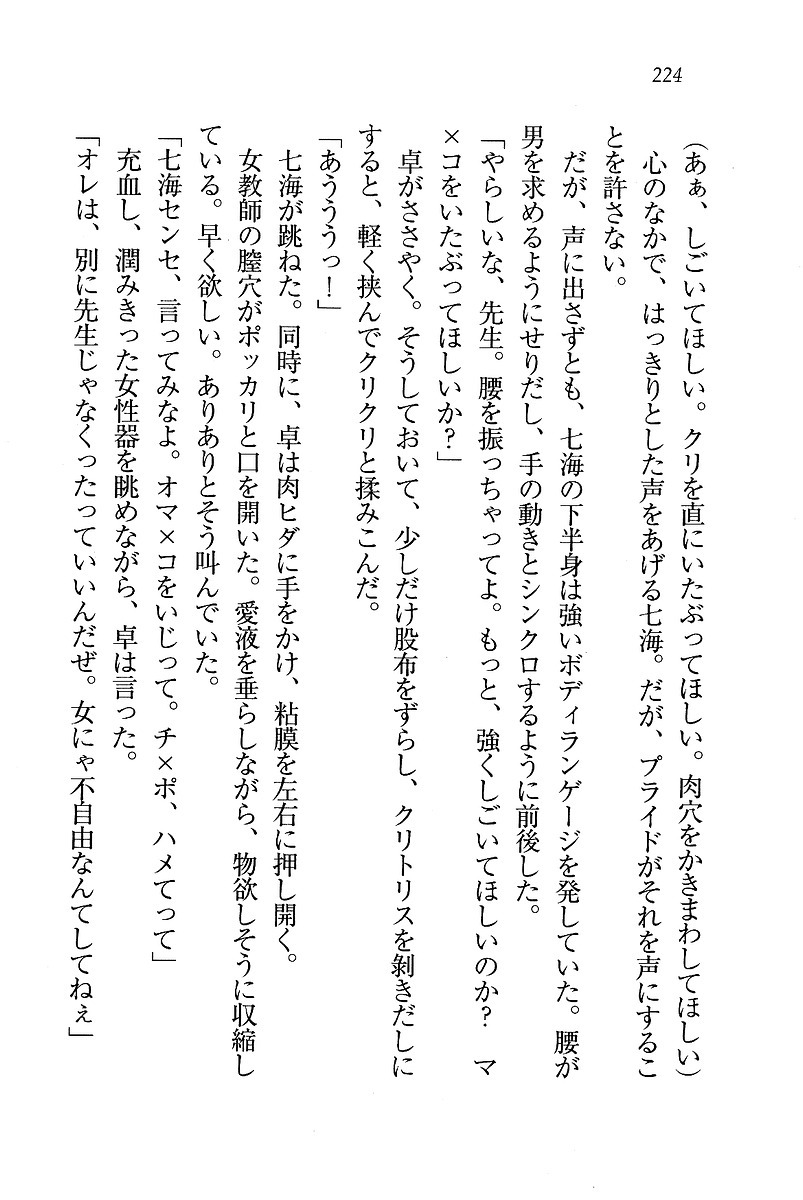 224
(あぁ、しごいてほしい。クリを直にいたぶってほしい。肉穴をかきまわしてほしい)
心のなかで、はっきりとした声をあげる七海。だが、プライドがそれを声にするこ
とを許さない。
だが、声に出さずとも、七海の下半身は強いボディランゲージを発していた。腰が
男を求めるようにせりだし、手の動きとシンクロするように前後した。
「やらしいな、先生。腰を振っちゃってよ。もっと、強くしごいてほしいのか？　マ
×コをいたぶってほしいか？」
卓がささやく。そうしておいて、少しだけ股布をずらし、クリトリスを剝きだしに
すると、軽く挟んでクリクリと揉みこんだ。
「あうううっ！」
七海が跳ねた。同時に、卓は肉ヒダに手をかけ、粘膜を左右に押し開く。
女教師の膣穴がポッカリと口を開いた。愛液を垂らしながら、物欲しそうに収縮し
ている。早く欲しい。ありありとそう叫んでいた。
「七海センセ、言ってみなよ。オマ×コをいじって。チ×ポ、ハメてって」
充血し、潤みきった女性器を眺めながら、卓は言った。
「オレは、別に先生じゃなくったっていいんだぜ。女にゃ不自由なんてしてねぇ」